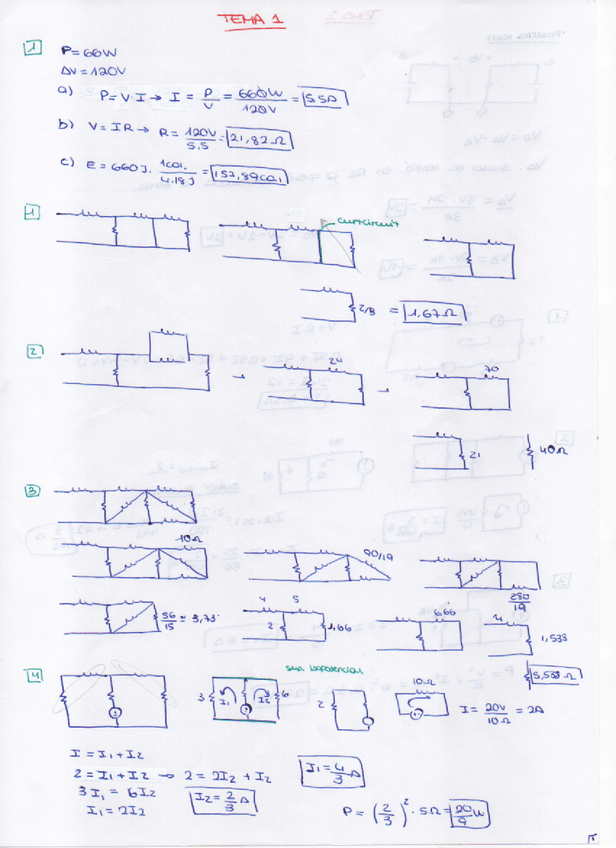 TEMA 1
1
P = 66W
ΔV = 120V
a) P = V I → I = P/V = 660W/120V = 5.5A
b) V = I R → R = 120V/5.5 = 21,82Ω
c) E = 660J · 1cal/4.18J = 157,89cal
1
curtcircuit
2/3 = 1,67Ω
2
24
→
→
70
21
40Ω
3
10Ω
90/19
250/19
56/15 = 3,73
4 5
2
1,66
6,66
4
1,538
5,538Ω
4
3 I1 I2 6
2
10Ω
I = 20V/10Ω = 2A
I = I1 + I2
2 = I1 + I2 → 2 = 2I2 + I2
I1 = 4/3 A
3 I1 = 6 I2
I2 = 2/3 A
I1 = 2I2
P = (2/3)² · 5Ω = 20/9 W